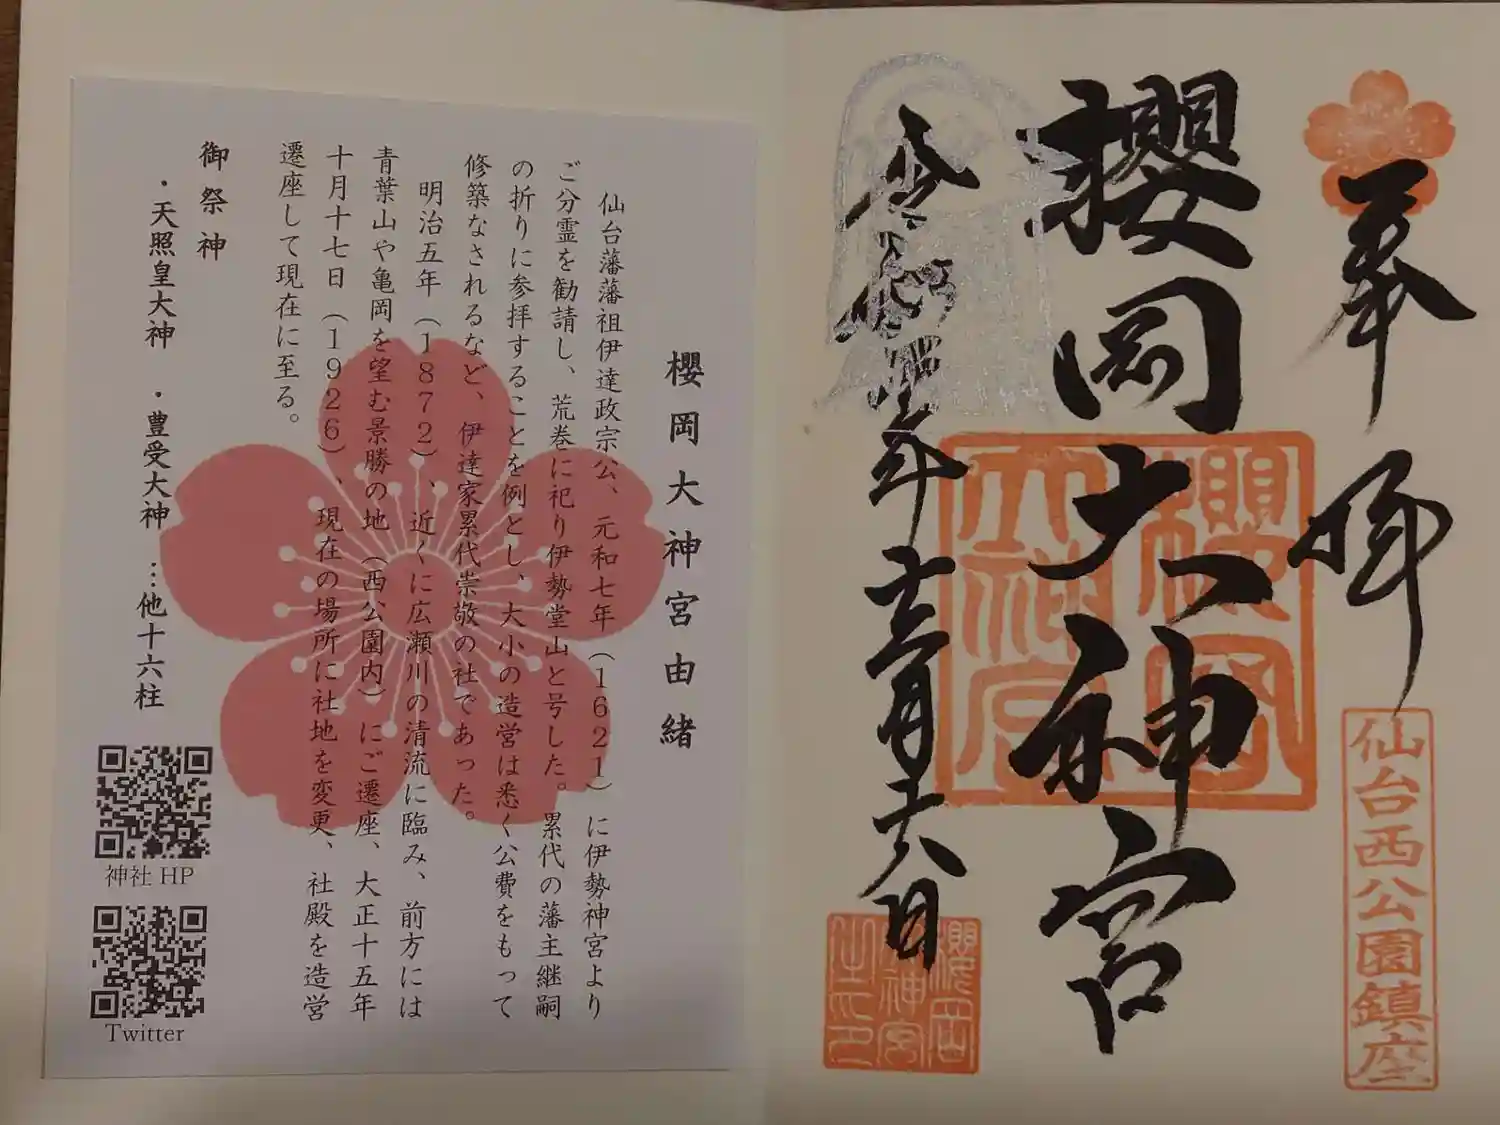 奉拝
仙台西公園鎮座
櫻岡大神宮
櫻岡
大神宮
十二月十六日
櫻岡
神宮
之印
櫻岡大神宮由緒
仙台藩藩祖伊達政宗公、元和七年(1621)に伊勢神宮より
ご分霊を勧請し、荒巻に祀り伊勢堂山と号した。累代の藩主継嗣
の折りに参拝することを例とし、大小の造営は悉く公費をもって
修築なされるなど、伊達家累代崇敬の社であった。
明治五年(1872)、近くに広瀬川の清流に臨み、前方には
青葉山や亀岡を望む景勝の地(西公園内)にご遷座、大正十五年
十月十七日(1926)、現在の場所に社地を変更、社殿を造営
遷座して現在に至る。
御祭神
・天照皇大神 ・豊受大神 …他十六柱
神社HP
Twitter